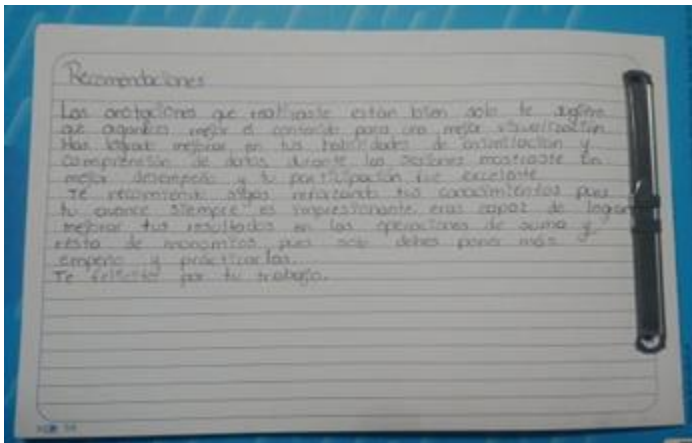 Recomendaciones
Las anotaciones que realizaste están bien solo te sugiero
que organices mejor el contenido para una mejor visualización
Has logrado mejorar en tus habilidades de asimilación y
comprensión de datos, durante las sesiones mostraste un
mejor desempeño y tu participación fue excelente.
Te recomiendo sigas reforzando tus conocimientos pues
tu avance siempre es impresionante, eres capaz de lograr
mejorar tus resultados en las operaciones de suma y
resta de monomios, pues solo debes poner más
empeño y practicarlas.
Te felicito por tu trabajo.